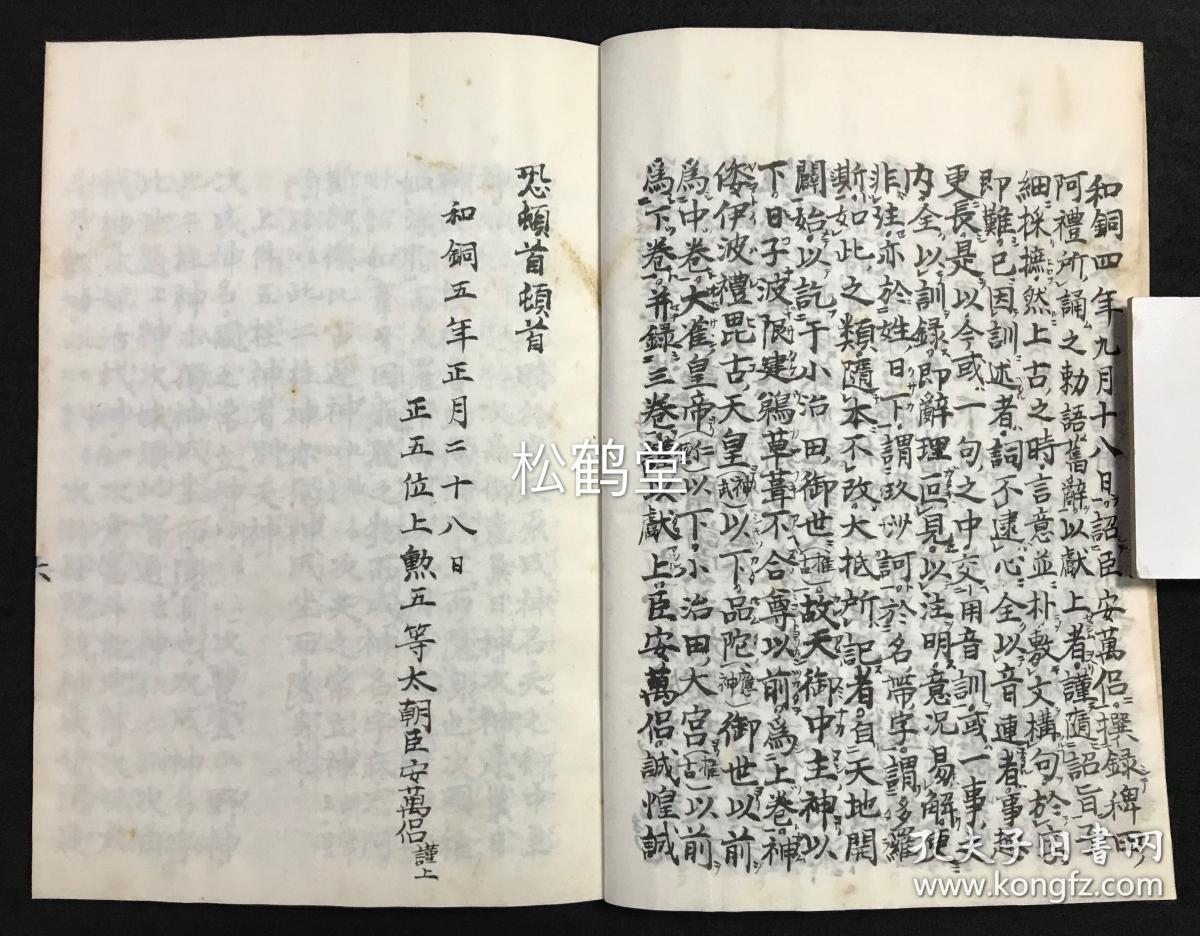 和銅四年九月十八日詔臣安萬侶撰録稗田
阿禮所誦之勅語舊辭以獻上者謹隨詔旨子
細採摭然上古之時言意並朴敷文構句於字
即難已因訓述者詞不逮心全以音連者事趣
更長是以今或一句之中交用音訓或一事之
内全以訓録即辭理叵見以注明意况易解更
非注亦於姓日下謂玖沙訶於名帶字謂多羅
斯如此之類隨本不改大抵所記者自天地開
闢始以訖于小治田御世(推古)故天御中主神以
下日子波限建鵜草葺不合尊以前爲上卷神
倭伊波禮毘古天皇(神武)以下品陀(應神)御世以前
爲中卷大雀皇帝(仁)以下小治田大宮(推古)以前
爲下卷并録三卷謹以獻上臣安萬侶誠惶誠
恐頓首頓首
和銅五年正月二十八日
正五位上勲五等太朝臣安萬侶謹上
六
松鹤堂
孔夫子旧书网
www.kongfz.com